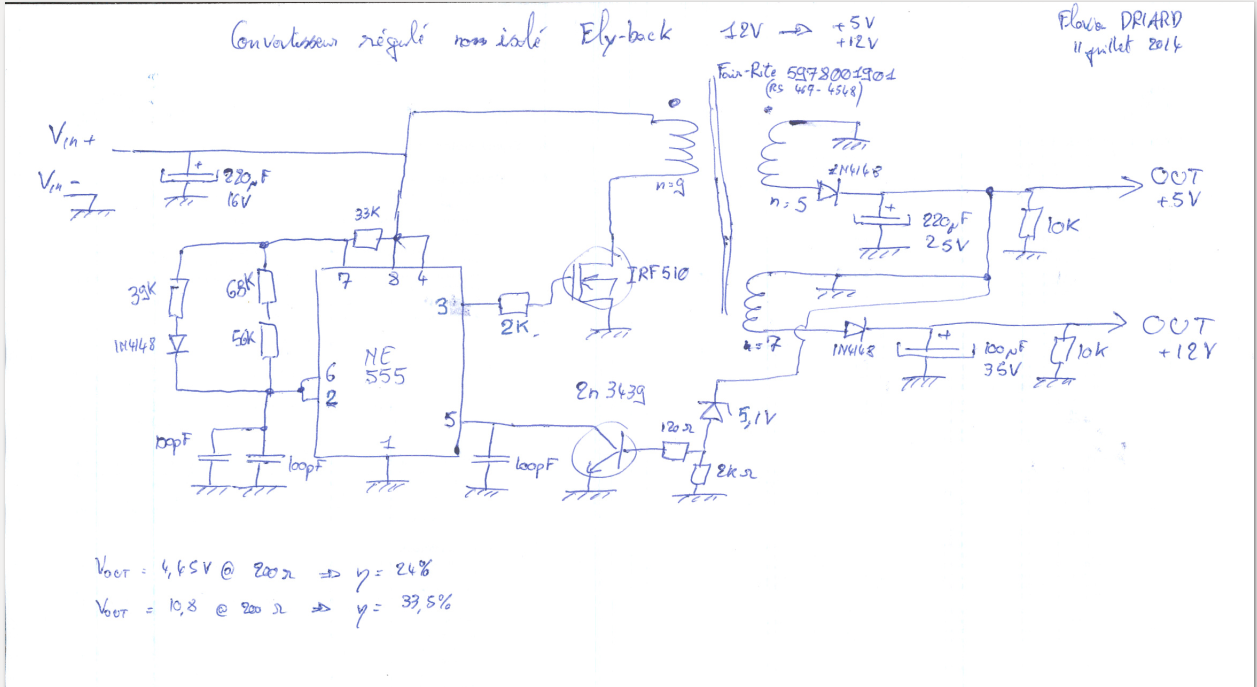 Convertisseur régulé non isolé Fly-back 12V ⇒ +5V
+12V
Flavia DRIARD
11 juillet 2014
Fair-Rite 5978001901
(RS 467-4548)
Vin+
Vin-
220µF
16V
33K
n=9
n=5
1N4148
220µF
25V
10K
OUT
+5V
39K
68K
56K
1N4148
7 8 4
3
NE
555
6
2
5
1
2K
IRF510
n=7
1N4148
100µF
35V
10K
OUT
+12V
2n 3439
5,1V
120Ω
2KΩ
100pF
100pF
100pF
VOUT = 4,45V @ 200Ω ⇒ η = 24%
VOUT = 10,8 @ 200Ω ⇒ η = 33,5%